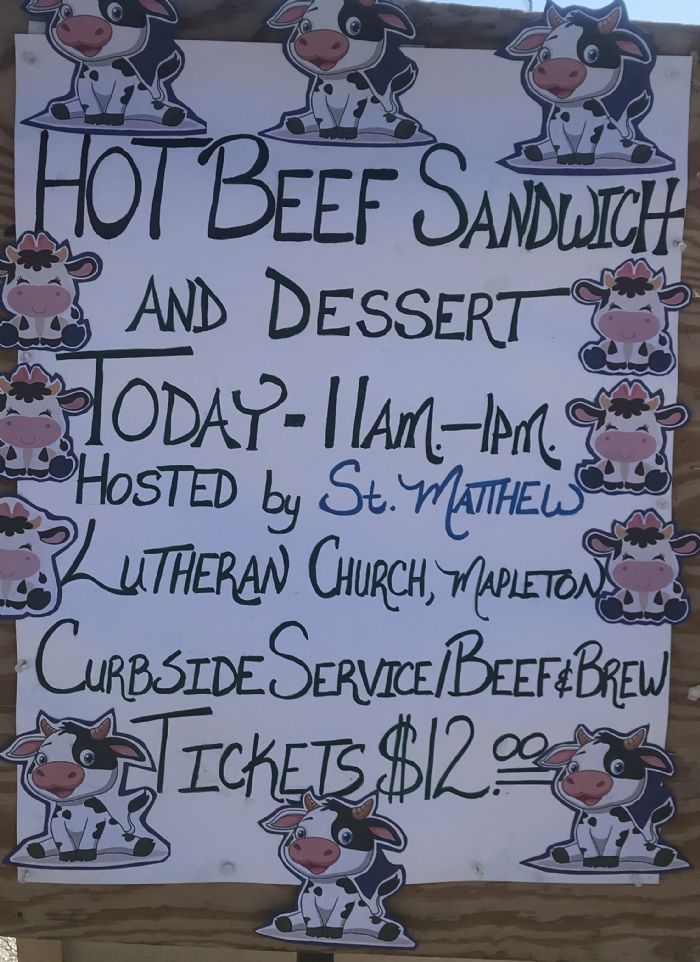 HOT BEEF SANDWICH
AND DESSERT
TODAY - 11AM. - 1PM.
HOSTED by St. MATTHEW
LUTHERAN CHURCH, MAPLETON
CURBSIDE SERVICE/BEEF & BREW
TICKETS $12.00